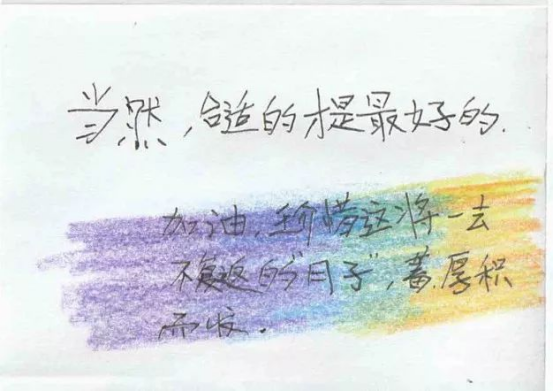 当然,合适的才是最好的.
加油,珍惜这将一去
不复返的"日子",蓄厚积
而发.